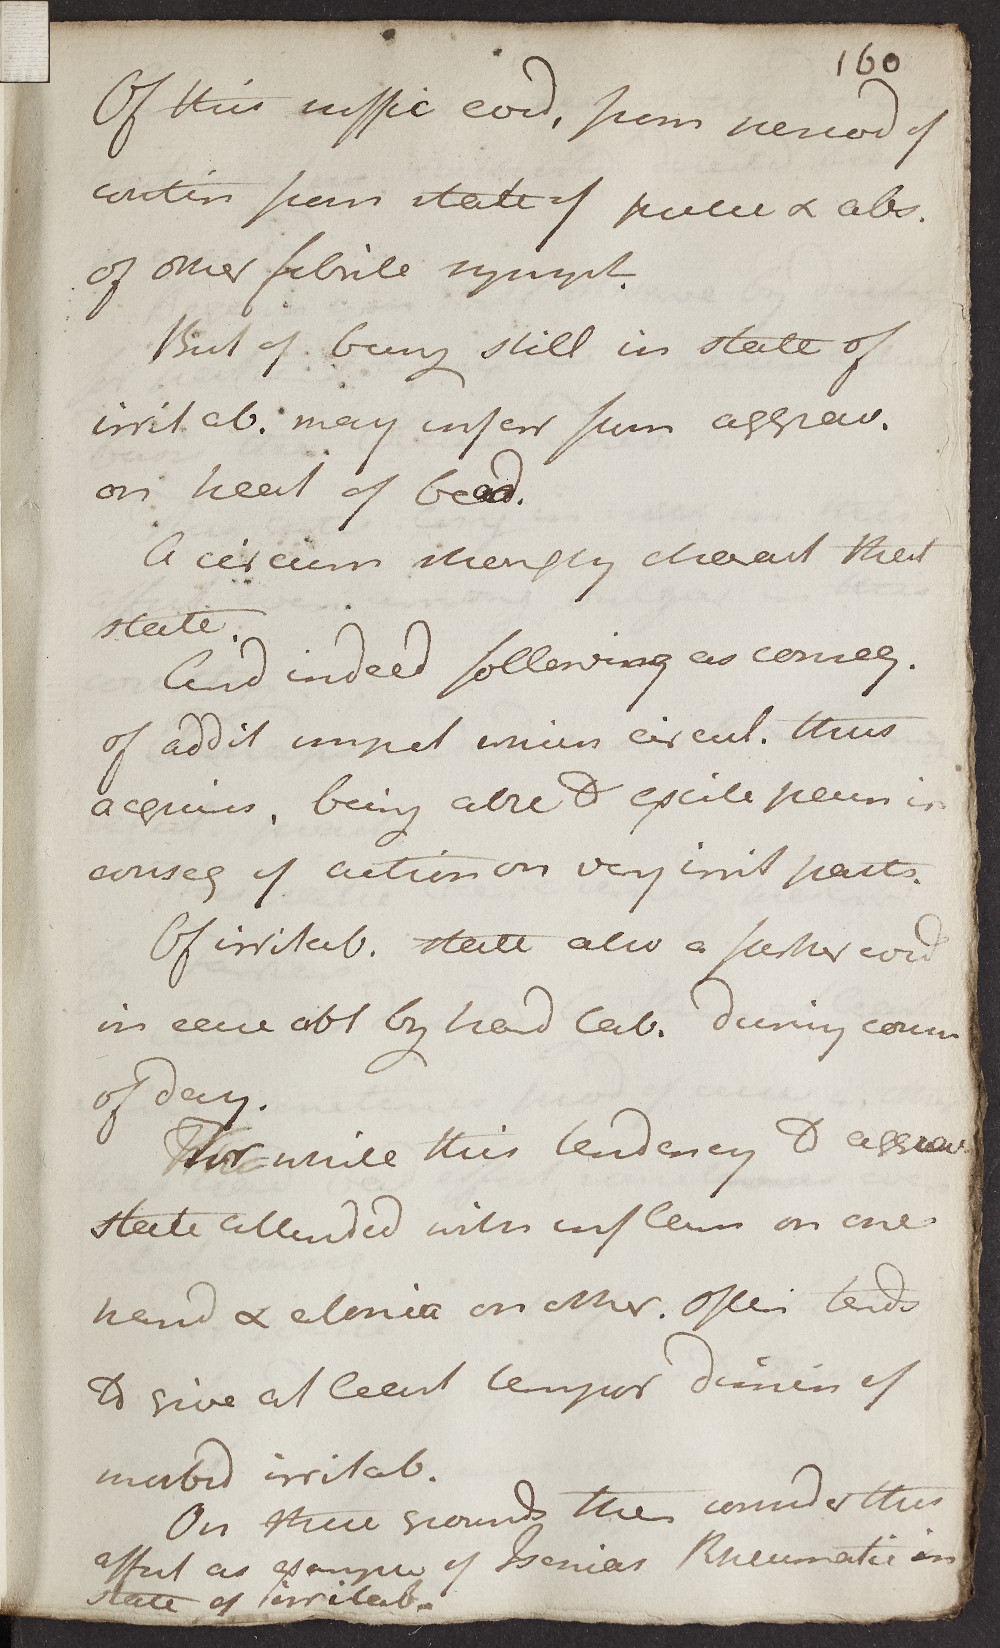 160
Of this suffic evid, from period of
contin from state of pulse & abs.
of other febrile sympt.
But of being still in state of
irritab. may infer from aggrav.
on heat of bed.
A circum strongly charact that
state.
And indeed following as conseq.
of addit impet which circul. thus
acquires, being able to excite pain in
conseq of action on very irrit parts.
Of irritab. state also a farther evid
in ease obt by hard lab. during cours
of day.
For while this tendency to aggrav
state attended with inflam on one
hand & atonia on other. Often tends
to give at least tempor dimin of
morbid irritab.
On these grounds then consider this
affect as example of Ischias Rheumatic in
state of irritab.